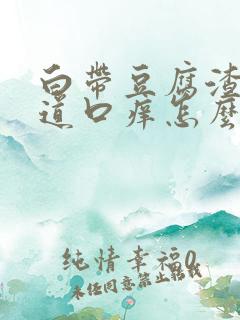 白带豆腐渣
道口痒怎么
纯情幸福0
未经同意禁止转载